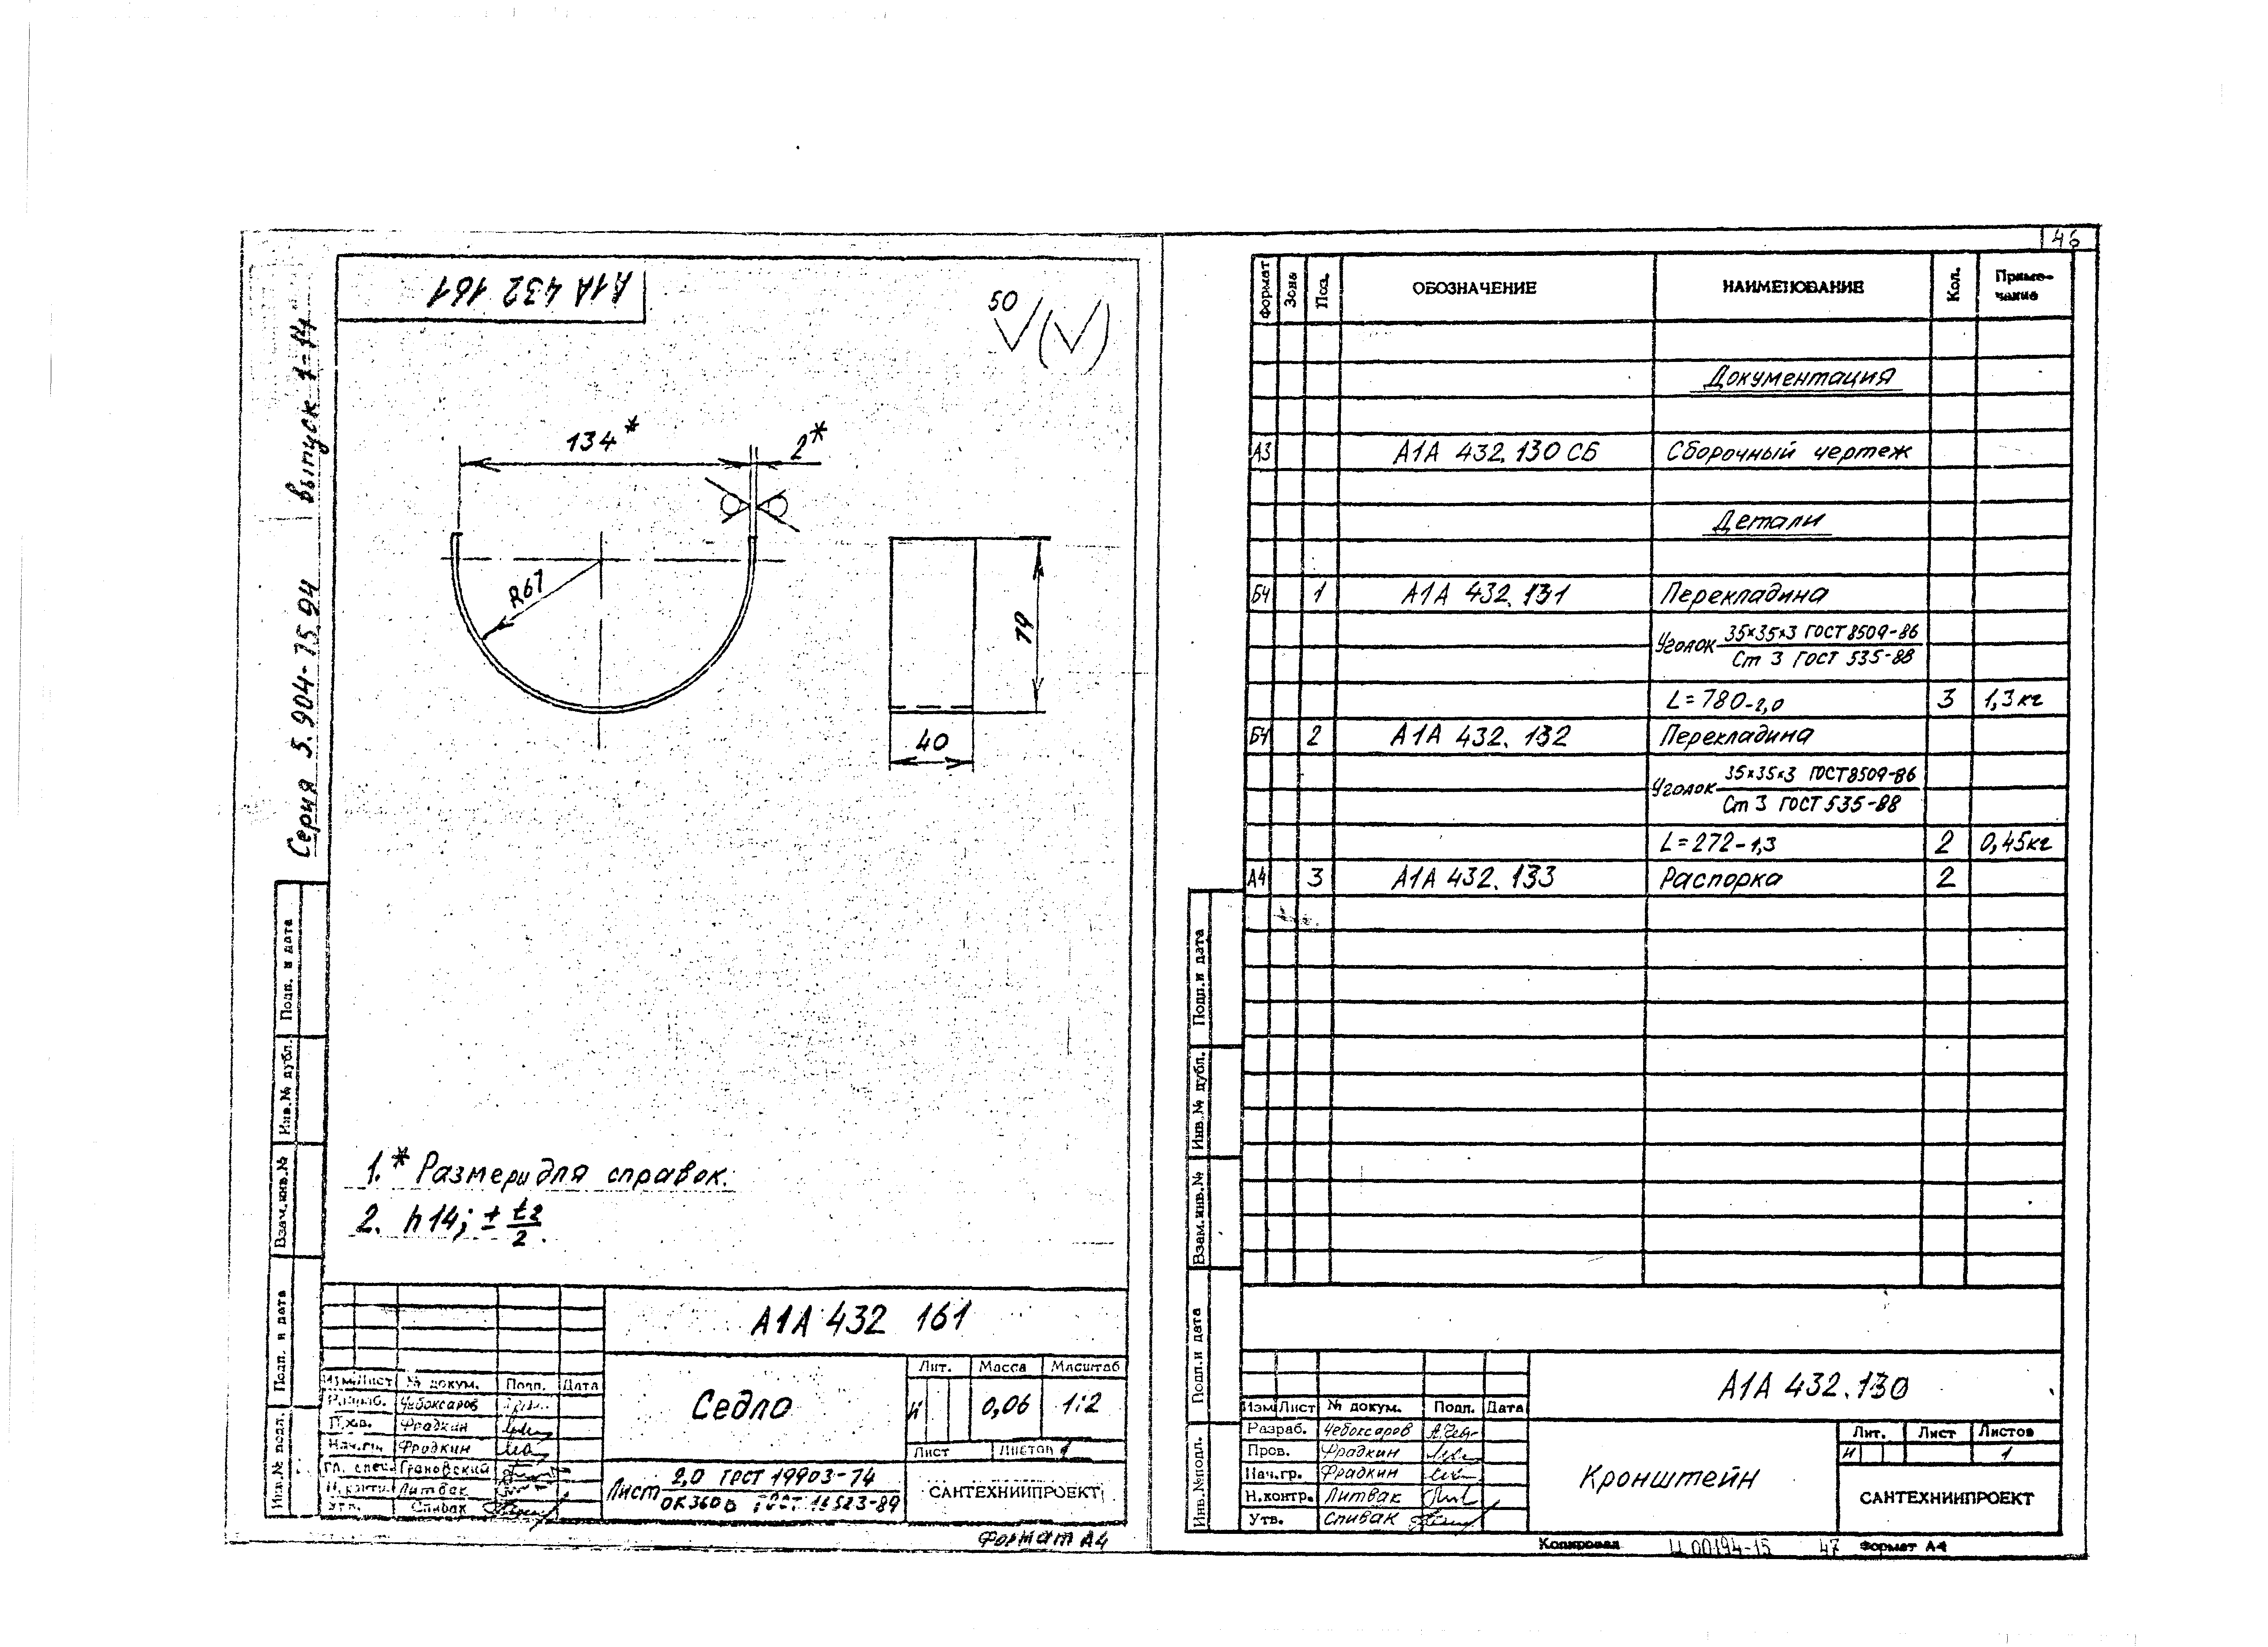 46
А1А 432 161
Серия 5.904-75.94 выпуск 1-14
50
134*
2*
R67
79
40
1.* Размеры для справок.
2. h14; ± t2/2.
Подп. и дата
Инв.№ дубл.
Взам.инв.№
Подп. и дата
Инв.№ подл.
А1А 432 161
Изм Лист № докум. Подп. Дата
Разраб. Чебоксаров
Пров. Фрадкин
Нач.гр. Фрадкин
Гл. спец. Грановский
Н.контр. Литвак
Утв. Спивак
Седло
Лит. Масса Масштаб
И 0,06 1:2
Лист Листов 1
Лист 2,0 ГОСТ 19903-74
ОК360В ГОСТ 16523-89
САНТЕХНИИПРОЕКТ
Формат А4
Формат Зона Поз. ОБОЗНАЧЕНИЕ НАИМЕНОВАНИЕ Кол. Приме-
чание
Документация
А3 А1А 432.130 СБ Сборочный чертеж
Детали
БЧ 1 А1А 432.131 Перекладина
Уголок 35×35×3 ГОСТ 8509-86
Ст 3 ГОСТ 535-88
L=780-2,0 3 1,3кг
БЧ 2 А1А 432.132 Перекладина
Уголок 35×35×3 ГОСТ 8509-86
Ст 3 ГОСТ 535-88
L=272-1,3 2 0,45кг
А4 3 А1А 432.133 Распорка 2
Подп.и дата
Инв.№ дубл.
Взам.инв.№
Подп.и дата
Инв.№подл.
А1А 432.130
Изм Лист № докум. Подп. Дата
Разраб. Чебоксаров
Пров. Фрадкин
Нач.гр. Фрадкин
Н.контр. Литвак
Утв. Спивак
Кронштейн
Лит. Лист Листов
И 1
САНТЕХНИИПРОЕКТ
Копировал Ц00194-15 47 Формат А4